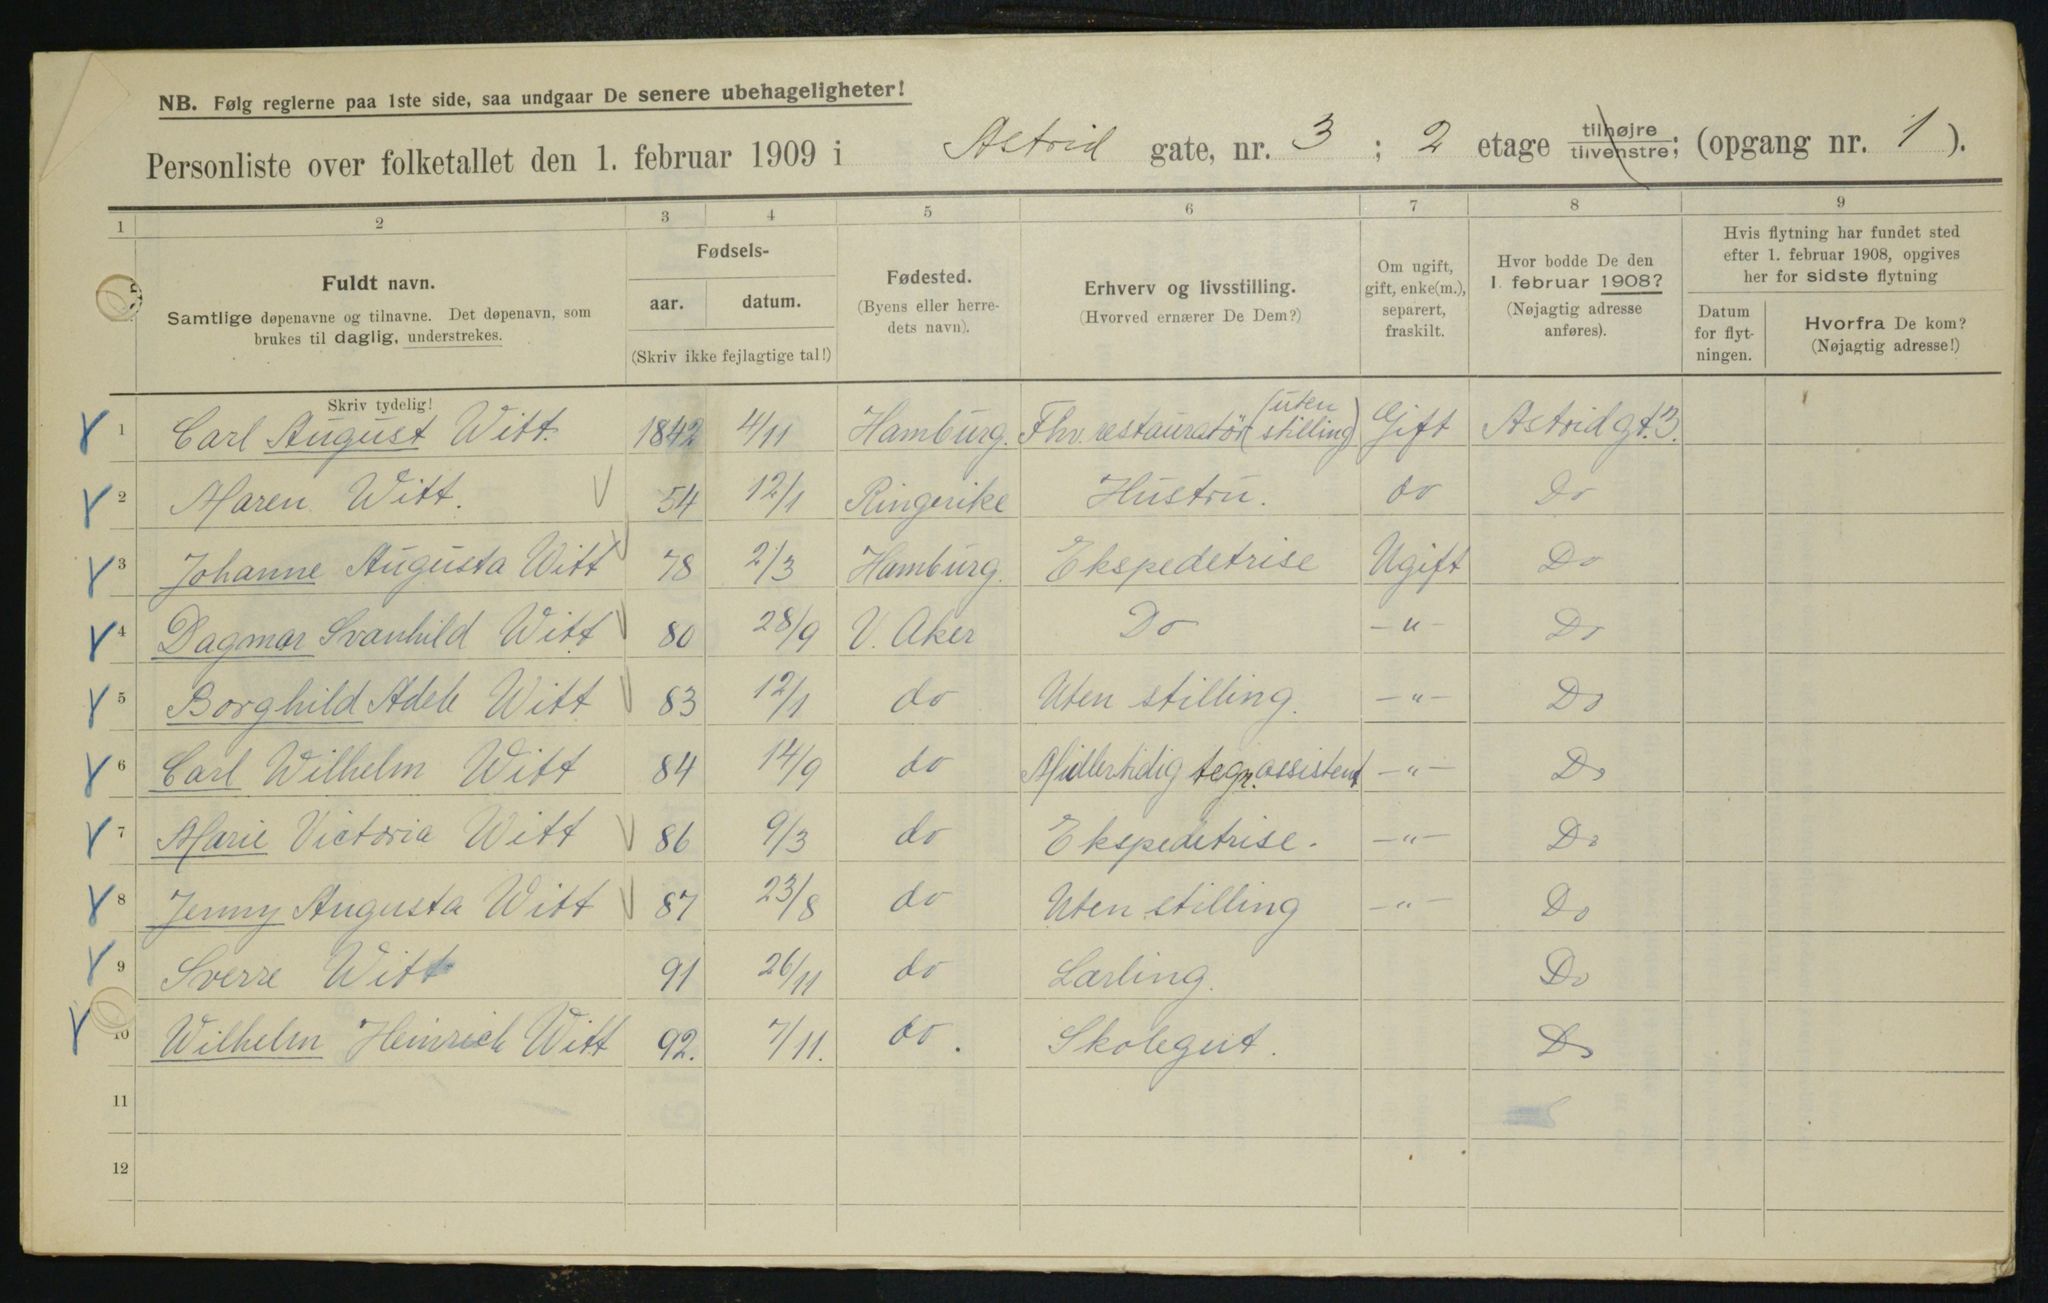 NB. Følg reglerne paa 1ste side, saa undgaar De senere ubehageligheter!
Personliste over folketallet den 1. februar 1909 i Astrid gate, nr. 3 ; 2 etage tilhøjre tilvenstre; (opgang nr. 1 ).
1 2 3 4 5 6 7 8 9
Fuldt navn.
Samtlige døpenavne og tilnavne. Det døpenavn, som
brukes til daglig, understrekes.
Skriv tydelig!
Fødsels-
aar. datum.
(Skriv ikke fejlagtige tal!)
Fødested.
(Byens eller herre-
dets navn).
Erhverv og livsstilling.
(Hvorved ernærer De Dem?)
Om ugift,
gift, enke(m.),
separert,
fraskilt.
Hvor bodde De den
1. februar 1908?
(Nøjagtig adresse
anføres).
Hvis flytning har fundet sted
efter 1. februar 1908, opgives
her for sidste flytning
Datum
for flyt-
ningen.
Hvorfra De kom?
(Nøjagtig adresse!)
1 Carl August Witt. 1842 4/11 Hamburg. Fhv. restauratör (uten stilling) Gift Astridgt. 3.
2 Maren Witt. 54 12/1 Ringerike Hustru. do Do
3 Johanne Augusta Witt 78 2/3 Hamburg. Ekspedetrise Ugift Do
4 Dagmar Svanhild Witt 80 28/9 V. Aker Do -"- Do
5 Borghild Adele Witt 83 12/1 do Uten stilling. -"- Do
6 Carl Wilhelm Witt 84 14/9 do Midlertidig tegn. assistent -"- Do
7 Marie Victoria Witt 86 9/3 do Ekspedetrise. -"- Do
8 Jenny Augusta Witt 87 23/8 do Uten stilling -"- Do
9 Sverre Witt 91 26/11 do Lærling. Do
10 Wilhelm Heinrich Witt 92. 7/11. do. Skolegut. Do
11
12